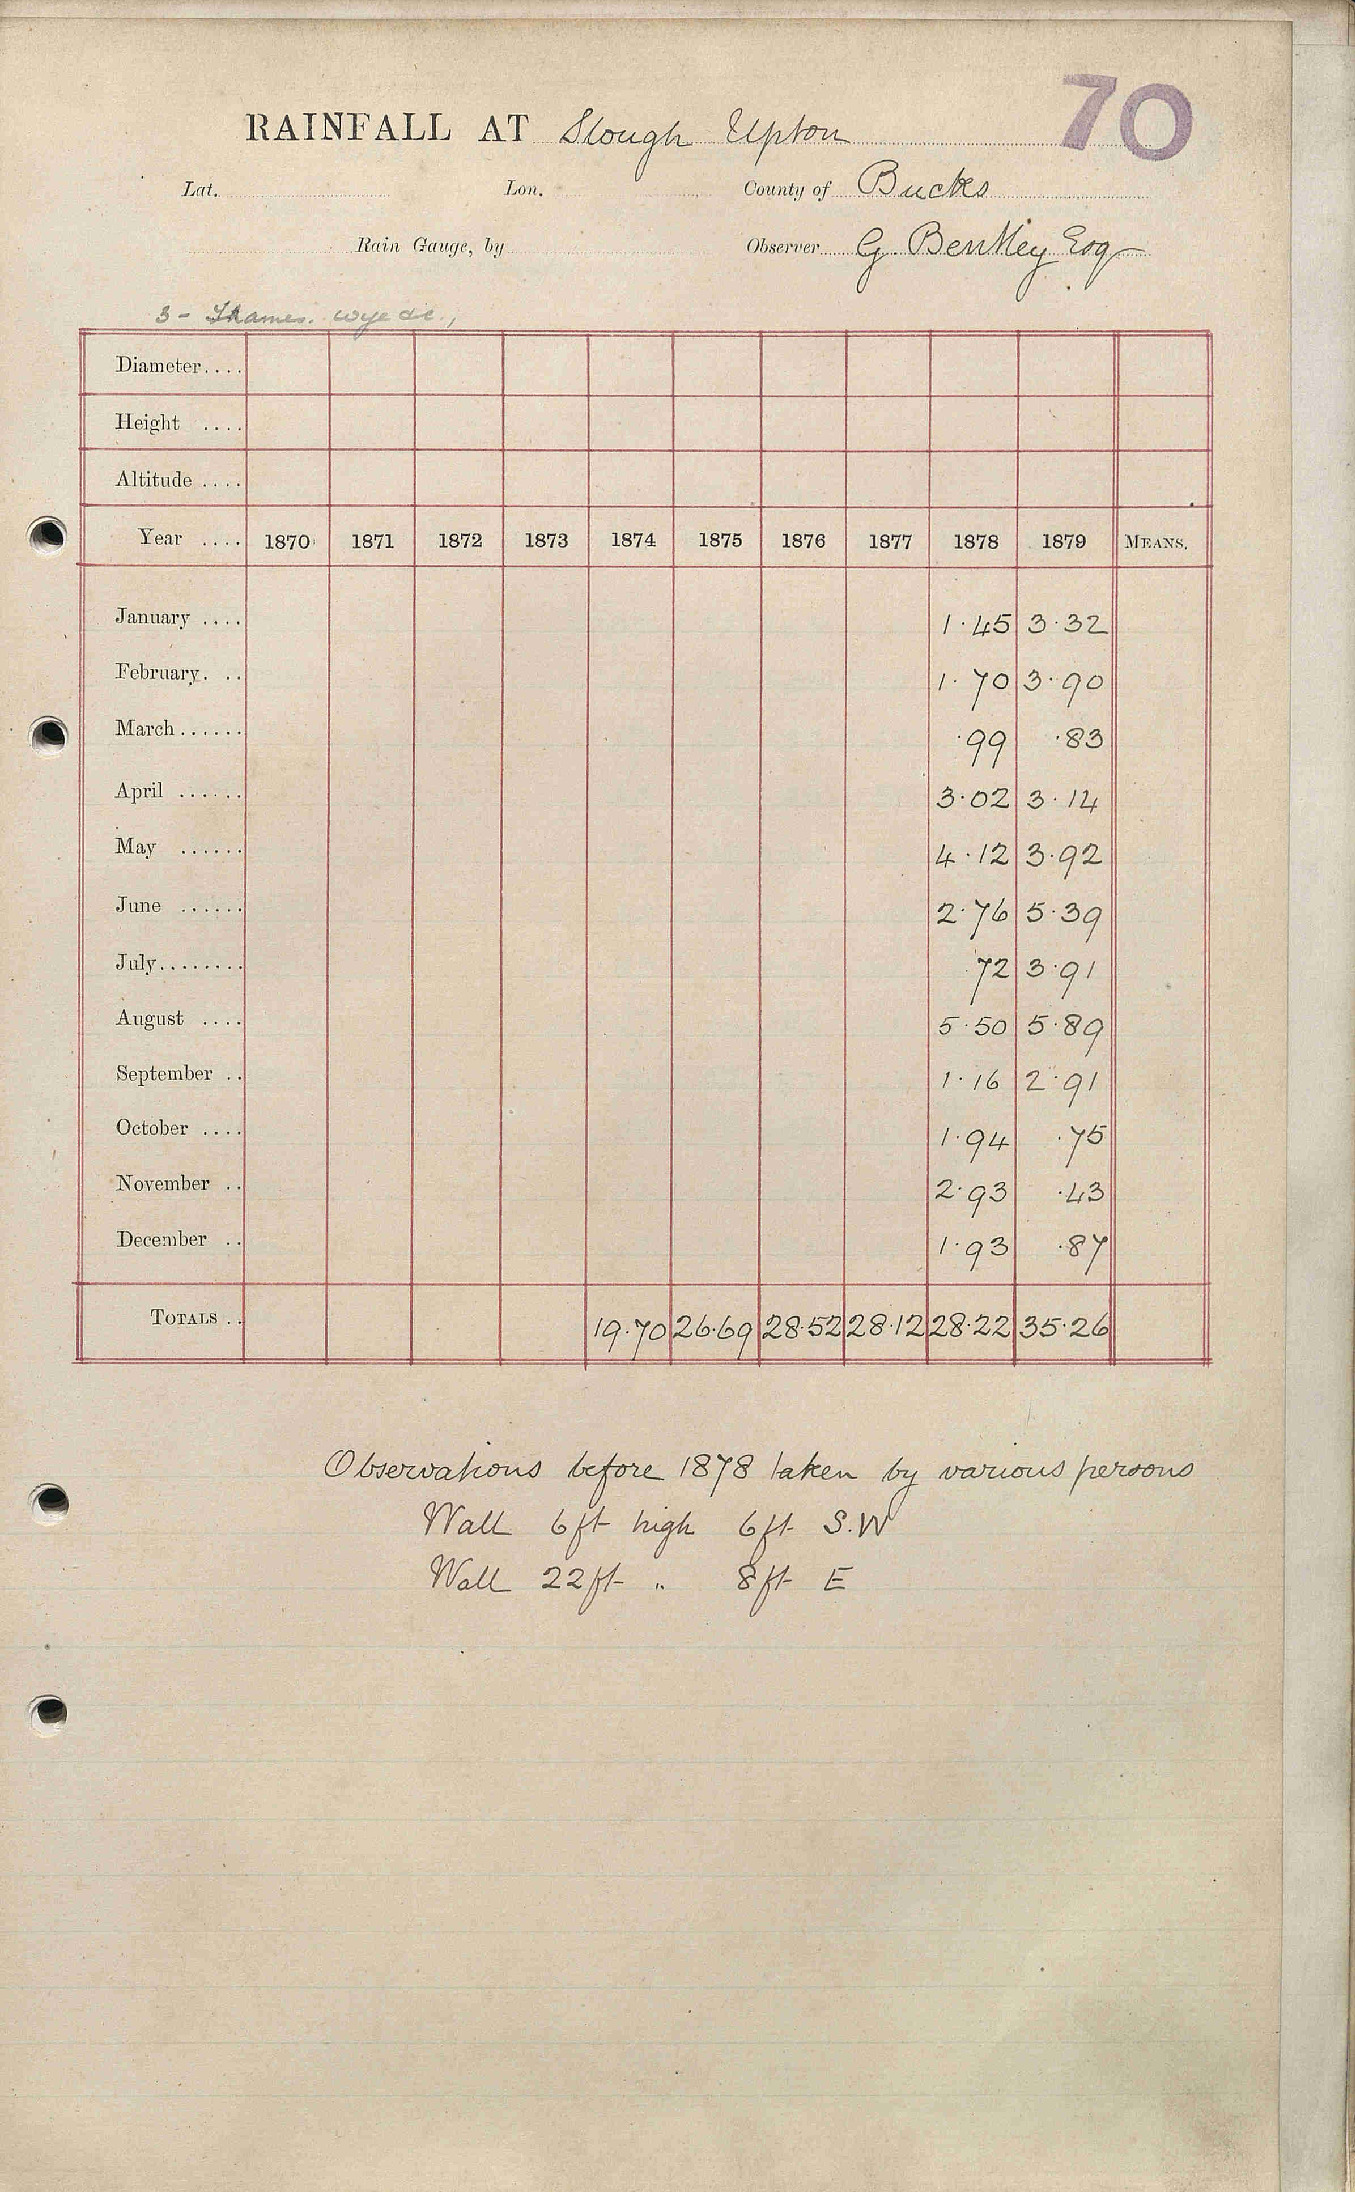 70
RAINFALL AT Slough Upton
Lat. Lon. County of Bucks
Rain Gauge, by Observer G. Bentley Esq
3 - Thames. Wye &c.,
Diameter....
Height ....
Altitude ....
Year .... 1870 1871 1872 1873 1874 1875 1876 1877 1878 1879 MEANS.
January .... 1.45 3.32
February. .. 1.70 3.90
March...... .99 .83
April ...... 3.02 3.14
May ...... 4.12 3.92
June ...... 2.76 5.39
July........ .72 3.91
August .... 5.50 5.89
September .. 1.16 2.91
October .... 1.94 .75
November .. 2.93 .43
December .. 1.93 .87
TOTALS .. 19.70 26.69 28.52 28.12 28.22 35.26
Observations before 1878 taken by various persons
Wall 6ft high 6ft S.W
Wall 22ft " 8ft E